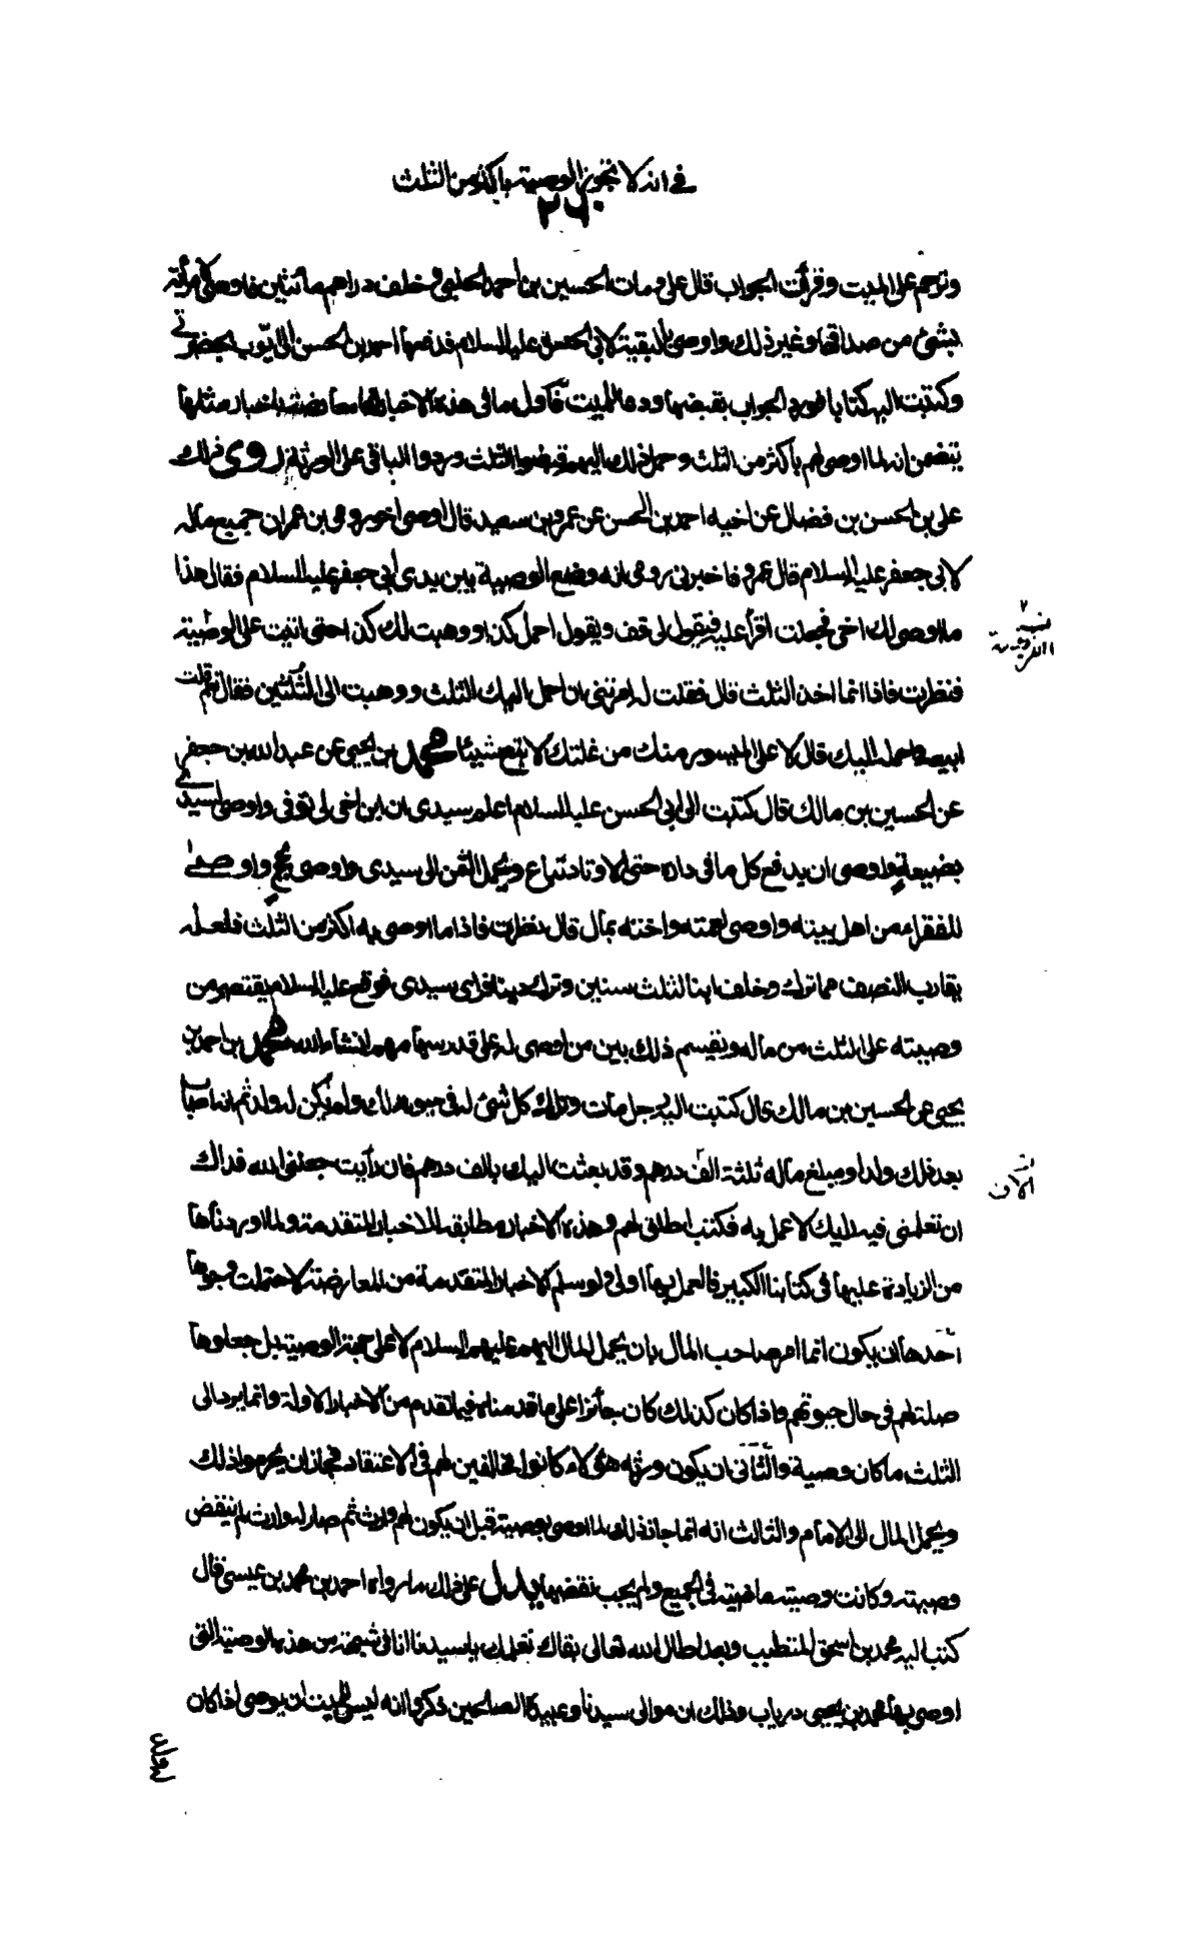 في انه لا تجوز الوصية باكثر من الثلث
٢٦٠
وترحم على الميت وقرأت الجواب قال علي ومات الحسين بن احمد الحلبي وخلف دراهم مائتين فاوصى لامرأته
بشئ من صداقها وغير ذلك واوصى بالبقية لابي الحسن عليه السلام فدفعها احمد بن الحسن الى ايّوب بحضرتي
وكتبت اليه كتابا فورد الجواب بقبضها ودعا للميت فاول ما في هذه الاخبار انها معارضة باخبار مثلها
يتضمن انه لما اوصى لهم باكثر من الثلث وحمل ذلك اليهم قبضوا الثلث وردوا الباقي على الورثة روى ذلك
علي بن الحسن بن فضال عن اخيه احمد بن الحسن عن عمرو بن سعيد قال اوصى اخو رومي بن عمران جميع ماله
لابي جعفر عليه السلام قال عمرو فاخبرني رومي انه وضع الوصية بين يدي ابي جعفر عليه السلام فقال هذا
ما اوصى لك اخي فجعلت اقرأ عليه فيقول لي قف ويقول احمل كذا ووهبت لك كذا حتى اتيت على الوصية
فنظرت فاذا انما اخذ الثلث قال فقلت له امرتني ان احمل اليك الثلث ووهبت الي الثلثين فقال نعم قلت
ابيعه واحمله اليك قال لا على الميسور منك من غلتك لا تبع شيئا محمد بن يحيى عن عبد الله بن جعفر
عن الحسين بن مالك قال كتبت الى ابي الحسن عليه السلام اعلم سيدي ان ابن اخي لي توفي واوصى لسيدي
بضيعة واوصى ان يدفع كل ما في داره حتى الاوتاد تباع ويحمل الثمن الى سيدي واوصى بحج واوصى
للفقراء من اهل بيته واوصى لعمته واخته بمال قال نظرت فاذا ما اوصى به اكثر من الثلث فلعله
يقارب النصف مما ترك وخلف ابنا لثلث سنين وترك دينا فراى سيدي فوقع عليه السلام يقتصر من
وصيته على الثلث من ماله ويقسم ذلك بين من اوصى له على قدر سهامهم انشاء الله محمد بن احمد بن
يحيى عن الحسين بن مالك قال كتبت اليه رجل مات وترك كل شئ له في حيوته لك ولم يكن له ولد ثم انه اصاب
بعد ذلك ولدا ومبلغ ماله ثلثة الف درهم وقد بعثت اليك بالف درهم فان رأيت جعلني الله فداك
ان تعلمني فيه رأيك لاعمل به فكتب اطلق لهم وهذه الاخبار مطابقة للاخبار المتقدمة ولما اوردناها
من الزيادة عليها في كتابنا الكبير فالعمل بها اولى ولو سلم الاخبار المتقدمة من المعارضة لاحتملت وجوها
احدها ان يكون انما امر صاحب المال بان يحمل المال اليهم عليهم السلام لا على جهة الوصية بل جعلوها
صلة لهم في حال حيوتهم واذا كان كذلك كان جائزا على ما قدمناه فيما تقدم من الاخبار الاولة وانما يرد الى
الثلث ما كان وصية والثاني ان يكون ورثه هؤلاء كانوا مخالفين لهم في الاعتقاد فجاز ان يحرموا ذلك
ويحمل المال الى الامام والثالث انه انما جاز ذلك لما اوصى بوصيته قبل ان يكون لهم وارث ثم صار له وارث لم ينتقض
وصيته وكانت وصيته ماضية في الجميع ولم يجب نقضها يدل على ذلك ما رواه احمد بن محمد بن عيسى قال
كتب اليه محمد بن اسحق المتطبب وبعد اطال الله تعالى بقاك نعلمك يا سيدنا انا في شبهة من هذه الوصية التي
اوصى بها محمد بن يحيى درياب وذلك ان موالي سيدنا وعبيده الصالحين ذكروا انه ليس للميت ان يوصي اذا كان
له ولد
الاف